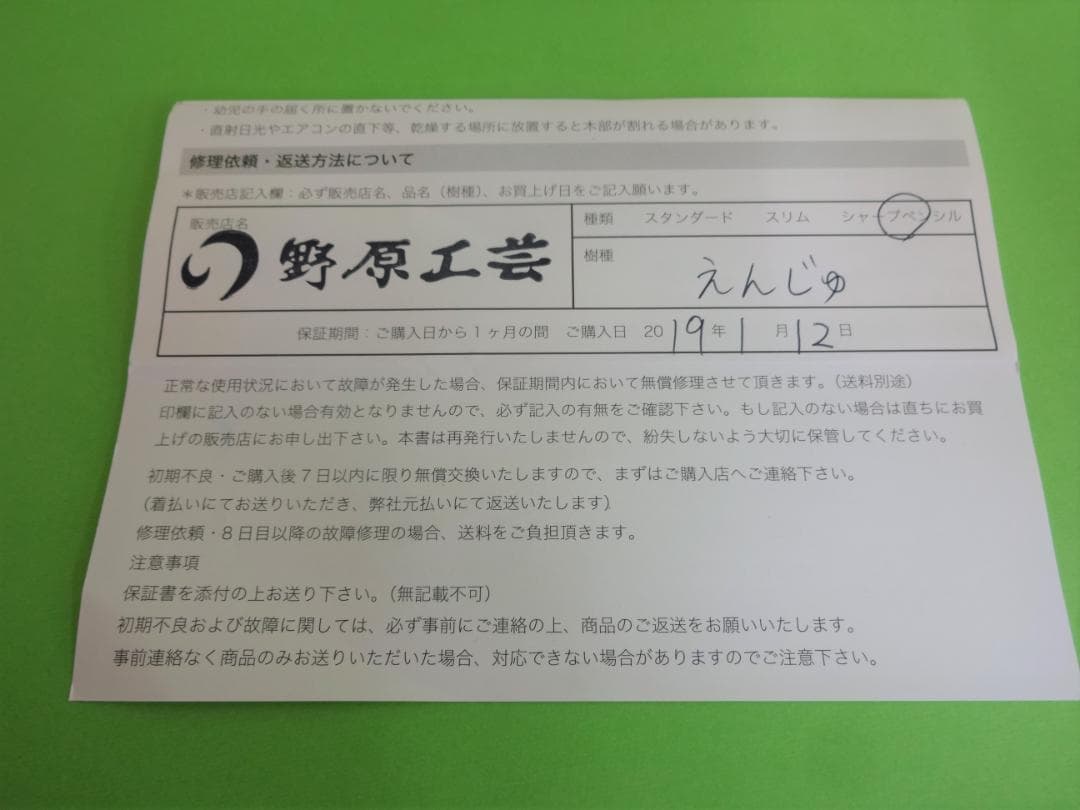 ・幼児の手の届く所に置かないでください。
・直射日光やエアコンの直下等、乾燥する場所に放置すると木部が割れる場合があります。
修理依頼・返送方法について
*販売店記入欄：必ず販売店名、品名（樹種）、お買上げ日をご記入願います。
販売店名
野原工芸
種類 スタンダード スリム シャープペンシル
樹種 えんじゅ
保証期間：ご購入日から1ヶ月の間 ご購入日 2019年1月12日
正常な使用状況において故障が発生した場合、保証期間内において無償修理させて頂きます。（送料別途）
印欄に記入のない場合有効となりませんので、必ず記入の有無をご確認下さい。もし記入のない場合は直ちにお買
上げの販売店にお申し出下さい。本書は再発行いたしませんので、紛失しないよう大切に保管してください。
初期不良・ご購入後7日以内に限り無償交換いたしますので、まずはご購入店へご連絡下さい。
（着払いにてお送りいただき、弊社元払いにて返送いたします）
修理依頼・8日目以降の故障修理の場合、送料をご負担頂きます。
注意事項
保証書を添付の上お送り下さい。（無記載不可）
初期不良および故障に関しては、必ず事前にご連絡の上、商品のご返送をお願いいたします。
事前連絡なく商品のみお送りいただいた場合、対応できない場合がありますのでご注意下さい。